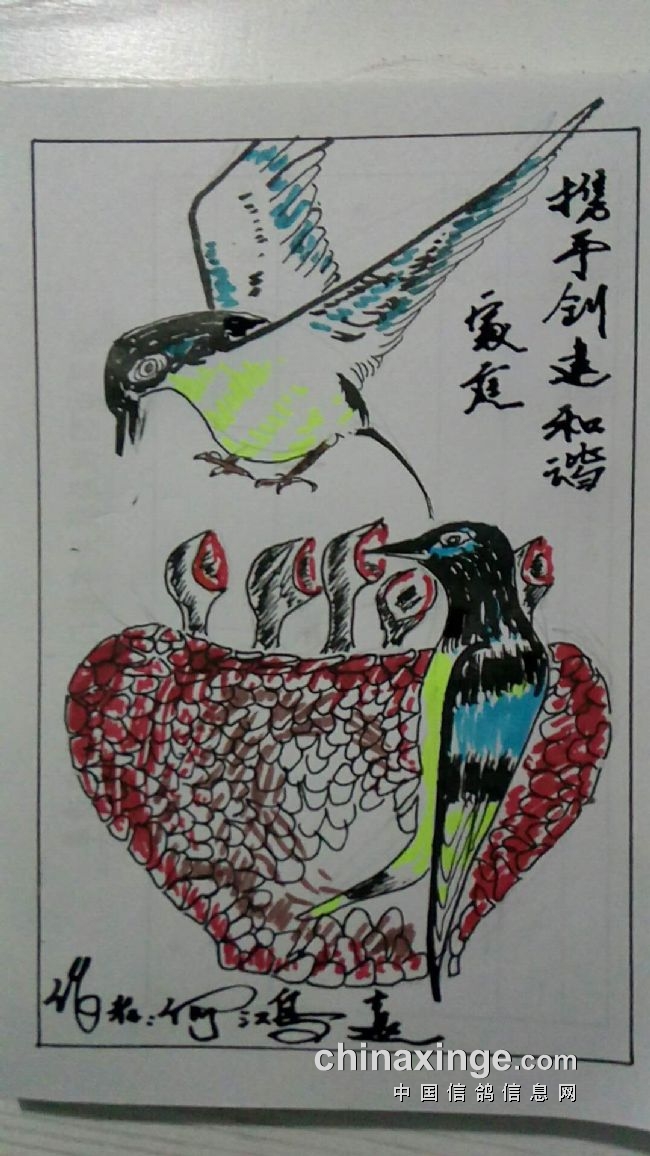 携手创建和谐
家庭
作者:何江鸟嘉
chinaxinge.com
中国信鸽信息网